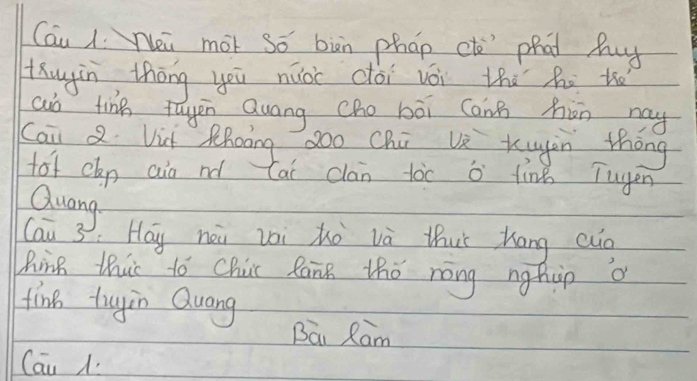 Câu 1: Nêu một số biện pháp để phát huy
truyền thống yêu nước đối với thế hệ trẻ
của tỉnh tuyên Quang cho bối cảnh hiện nay
Câu 2. Viết khoảng 200 chữ về truyền thống
tốt đẹp của các dân tộc ở tỉnh Tuyên
Quang.
Câu 3: Hãy nêu vai trò và thực trạng của
hình thức tổ chức lãnh thổ nông nghiệp ở
tỉnh tuyên Quang
Bài làm
Câu 1: